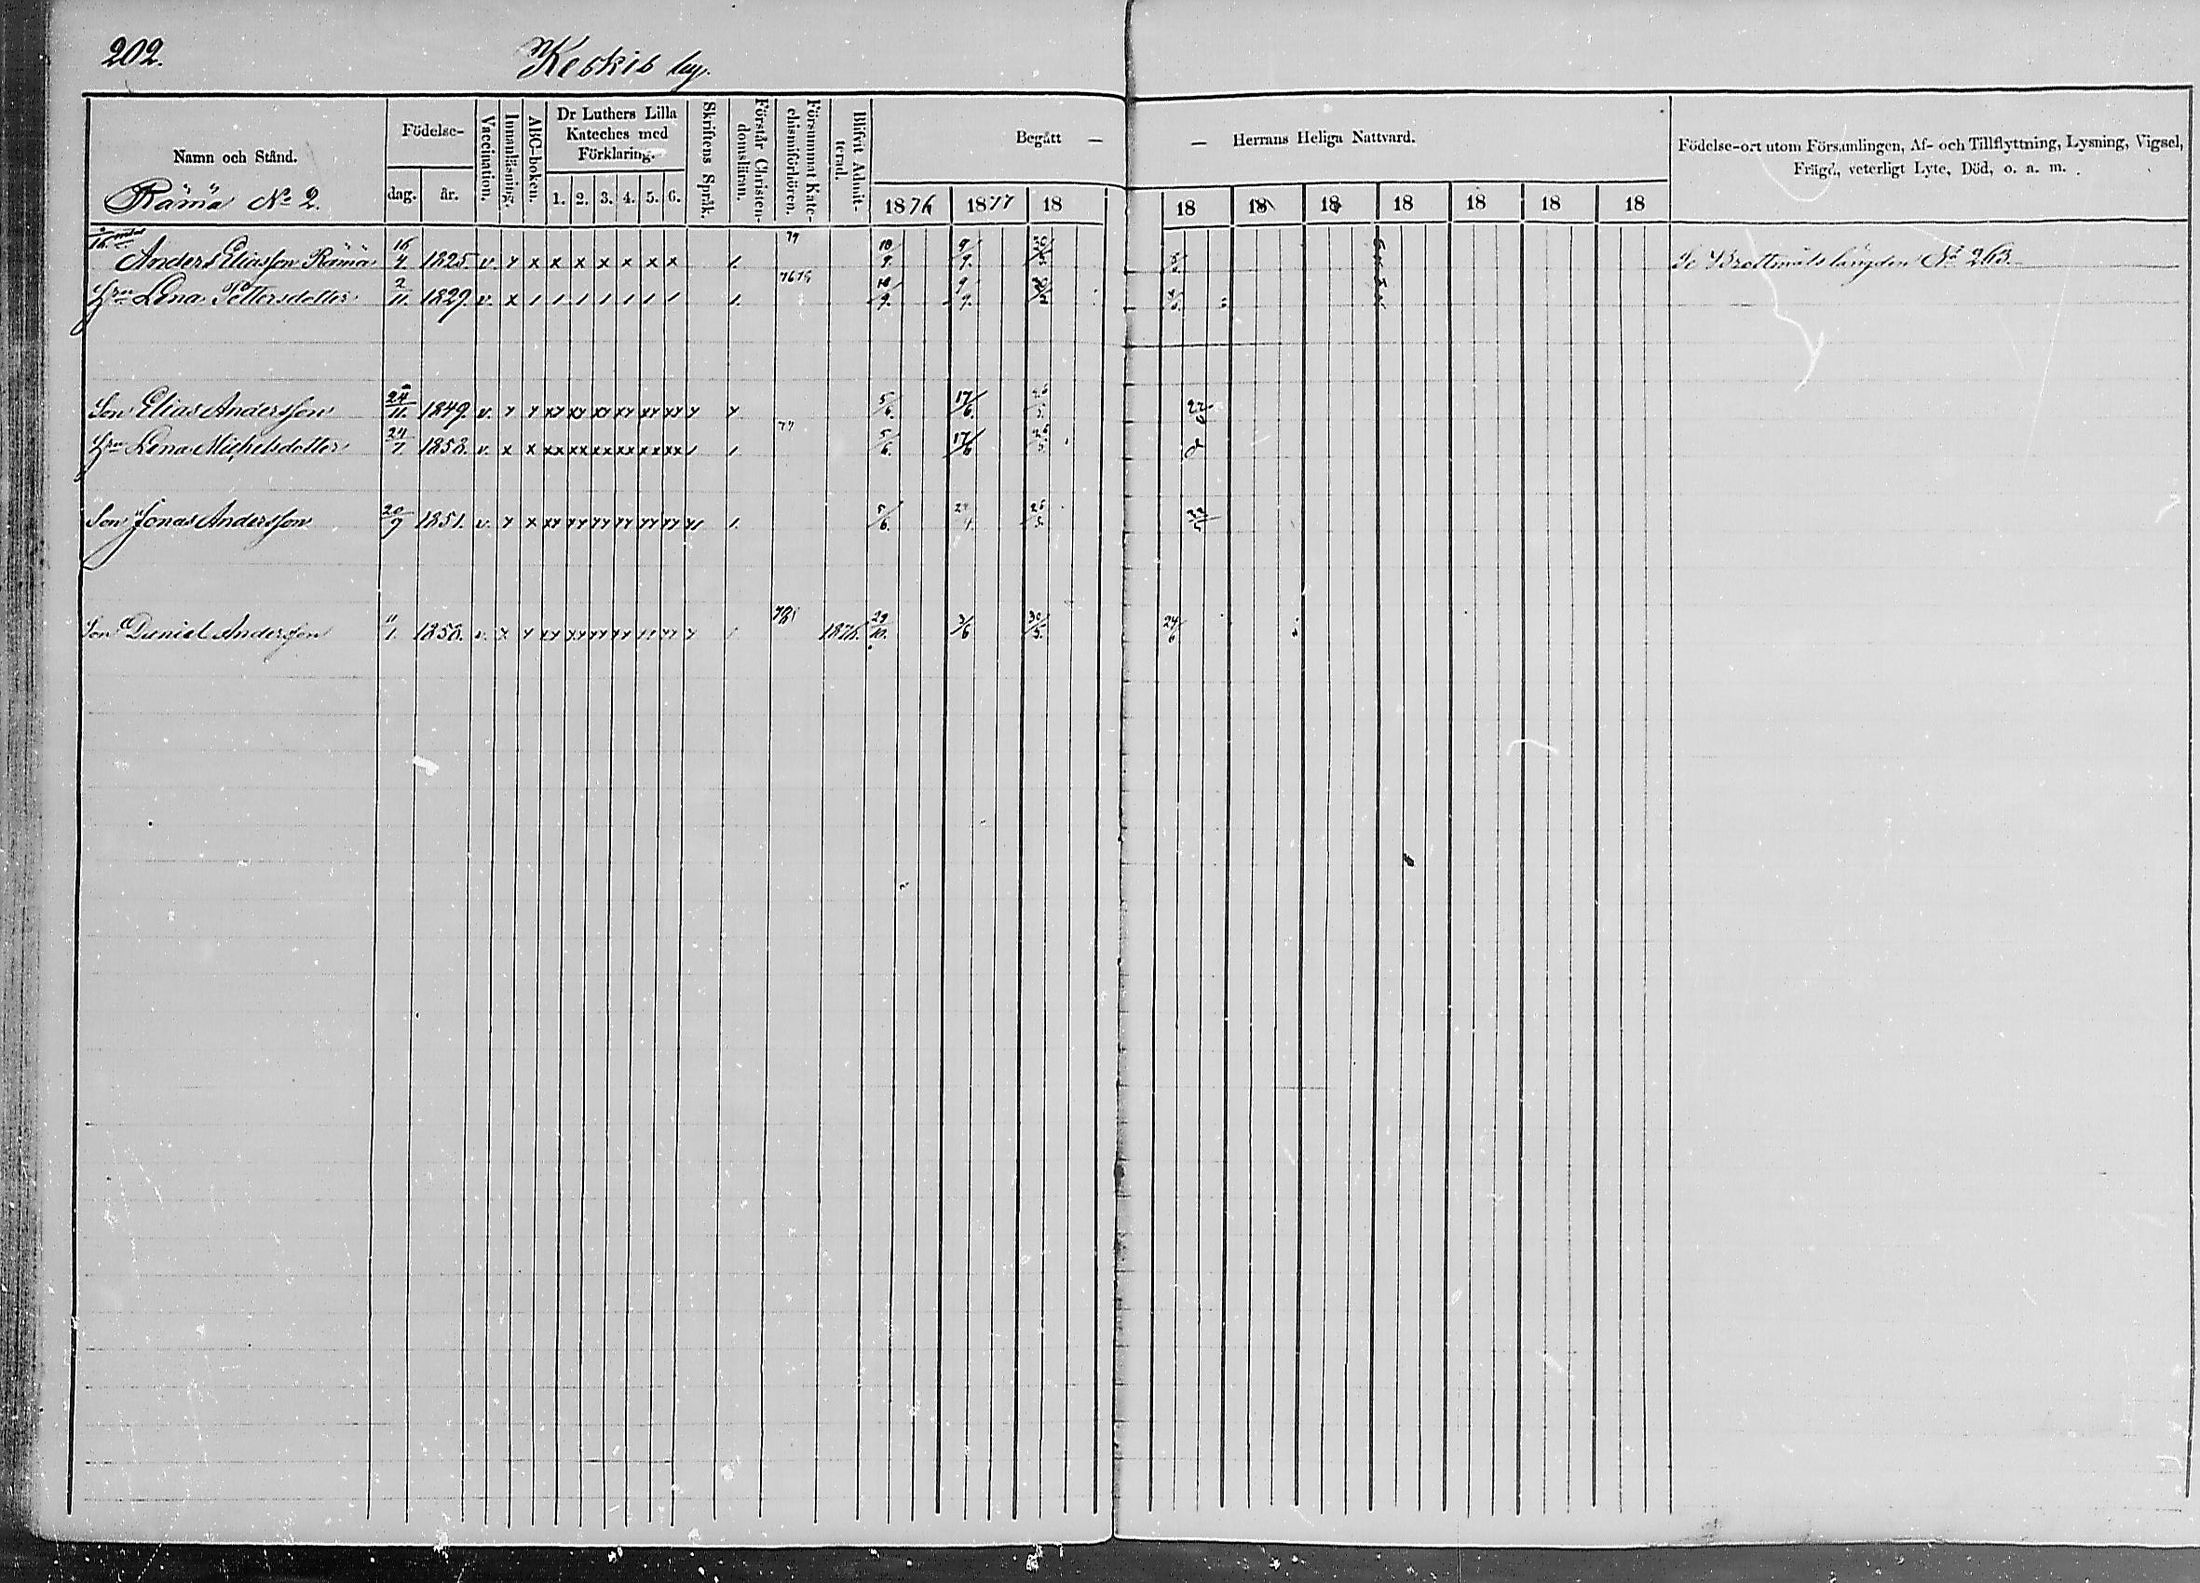 202.
Keskis by.
Namn och Stånd.
Rämä No 2.
Födelse-
dag. år.
Vaccination.
Innanläsning.
ABC-boken.
Dr Luthers Lilla
Kateches med
Förklaring.
1. 2. 3. 4. 5. 6.
Skriftens Språk.
Förstår Christen-
domsläran.
Försummat Kate-
chismiförhören.
Blifvit Admit-
terad.
Begått —
— Herrans Heliga Nattvard.
1876 1877 18 18 18 18 18 18 18 18
Födelse-ort utom Församlingen, Af- och Tillflyttning, Lysning, Vigsel,
Frägd, veterligt Lyte, Död, o. a. m.
Anders Eliasson Rämä 16/4 1825. v. x x x x x x x x 1. 79 10/9. 9/9. Se Brottmålslängden No 263.
Hru Lena Pettersdotter 2/11 1829. v. x 1 1 1 1 1 1 1 1. 10/9. 9/9.
Son Elias Andersson 24/11 1849 v. x x xx xx xx xx xx xx x x 5/6. 17/6.
Hru Lena Michelsdotter 24/7 1853. v. x x xx xx xx xx xx xx 1 1 77 5/6. 17/6
Son Jonas Andersson 20/9 1851. v. x x xx xx xx xx xx xx 1. 5/6.
Son Daniel Andersson 11/1. 1858. v. x x xx xx xx xx xx x 1 1876. 29/10. 3/6 30/5. 24/6